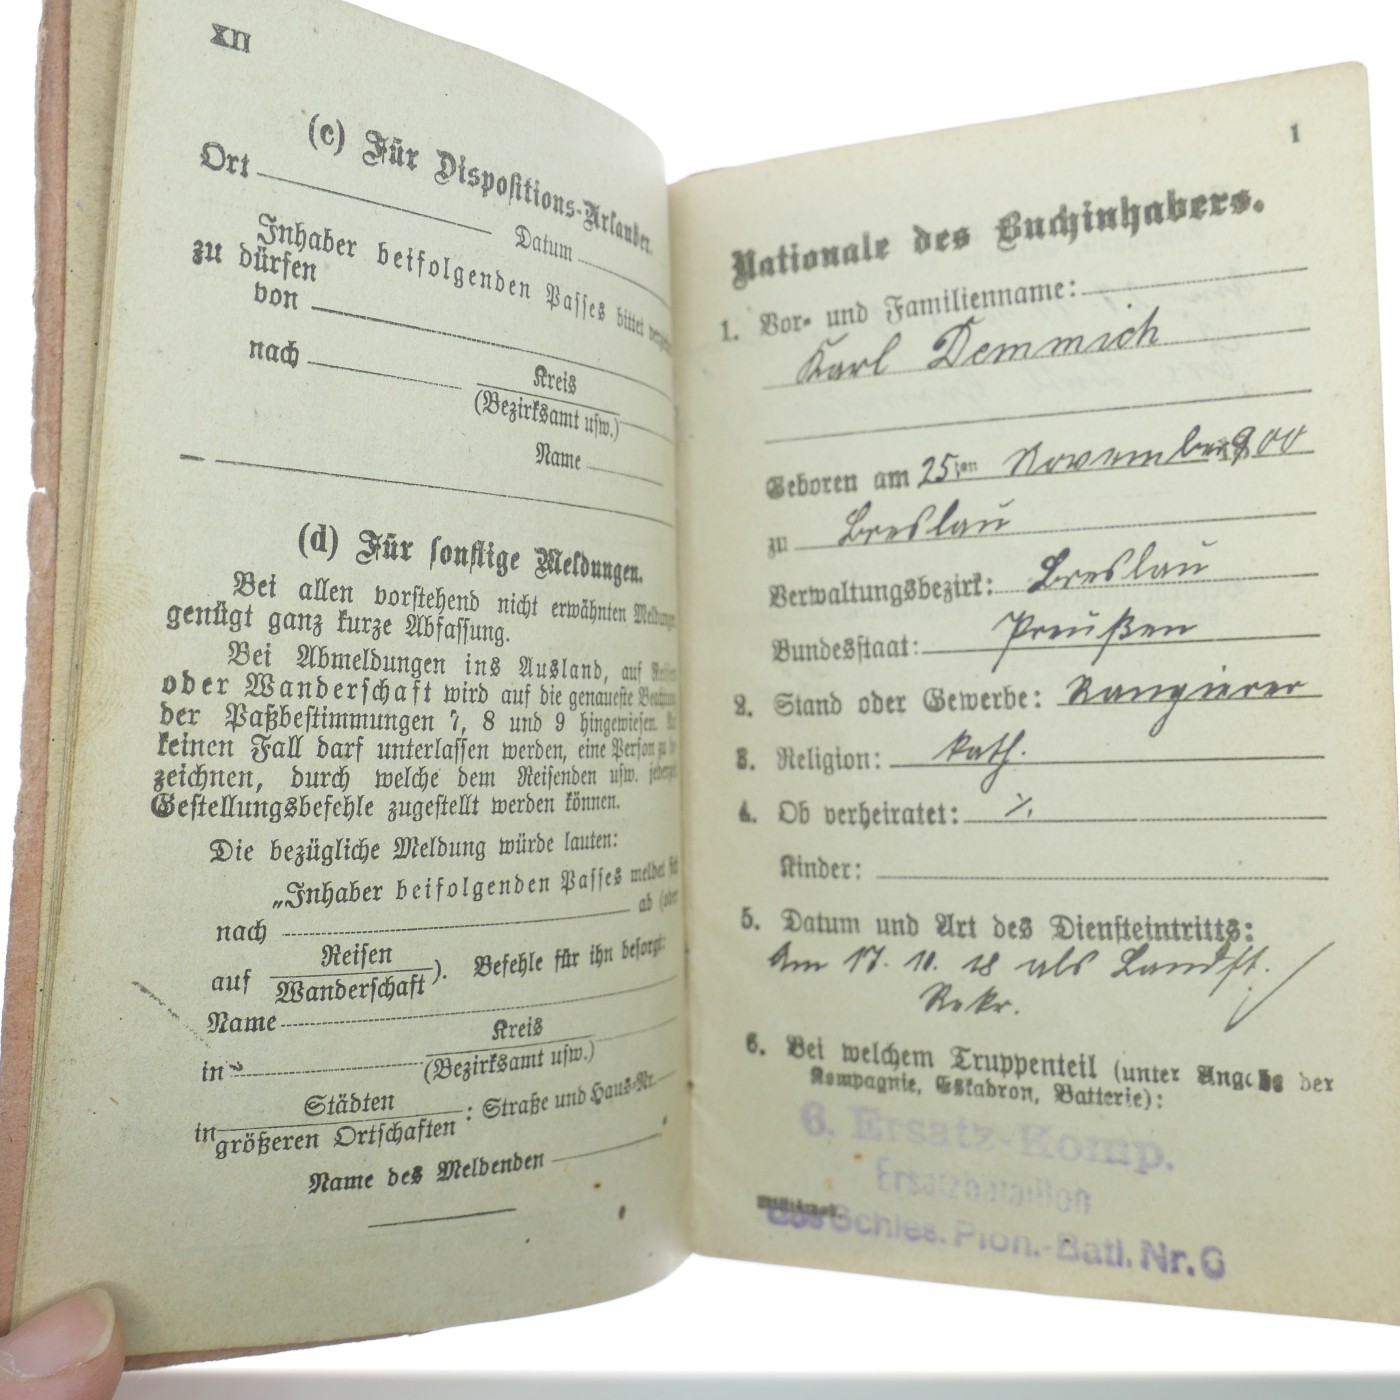 XII
(c) Für Dispositions-Urlauber.
Ort
Datum
Inhaber beifolgenden Passes bittet
zu dürfen
von
nach
Kreis
(Bezirksamt usw.)
Name
(d) Für sonstige Meldungen.
Bei allen vorstehend nicht erwähnten
genügt ganz kurze Abfassung.
Bei Abmeldungen ins Ausland, auf Reisen
oder Wanderschaft wird auf die genaueste
der Paßbestimmungen 7, 8 und 9 hingewiesen.
keinen Fall darf unterlassen werden, eine Person zu
zeichnen, durch welche dem Reisenden usw. jederzeit
Gestellungsbefehle zugestellt werden können.
Die bezügliche Meldung würde lauten:
„Inhaber beifolgenden Passes meldet sich
nach ab (oder
auf Reisen
Wanderschaft). Befehle für ihn besorgt:
Name
Kreis
in (Bezirksamt usw.)
in Städten
größeren Ortschaften : Straße und Haus-Nr.
Name des Meldenden
1
Nationale des Buchinhabers.
1. Vor- und Familienname:
Karl Demmich
Geboren am 25ten November 900
zu Breslau
Verwaltungsbezirk: Breslau
Bundesstaat: Preußen
2. Stand oder Gewerbe: Rangierer
3. Religion: kath.
4. Ob verheiratet: ./.
Kinder:
5. Datum und Art des Diensteintritts:
Am 17. 10. 18 als Landst.
Rekr.
6. Bei welchem Truppenteil (unter Angabe der
Kompagnie, Eskadron, Batterie):
6. Ersatz-Komp.
Ersatzbataillon
des Schles. Pion.-Batl. Nr. 6